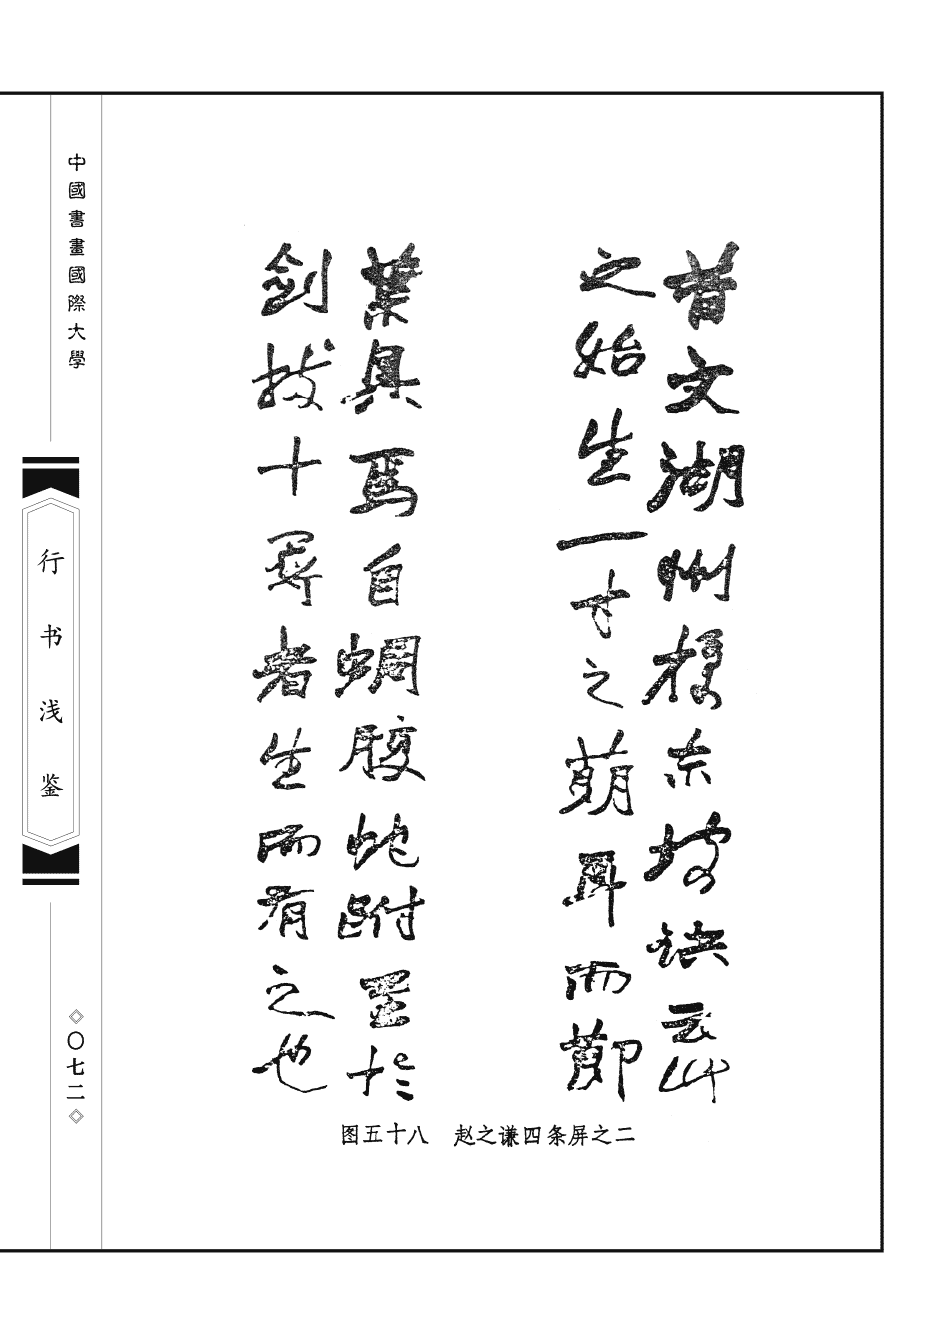 昔文湖州授东坡訣云竹
之始生一寸之萌耳而節
葉具焉自蜩腹蛇跗至於
劍拔十尋者生而有之也
图五十八 赵之谦四条屏之二
中國書畫國際大學
行书浅鉴
〇七二